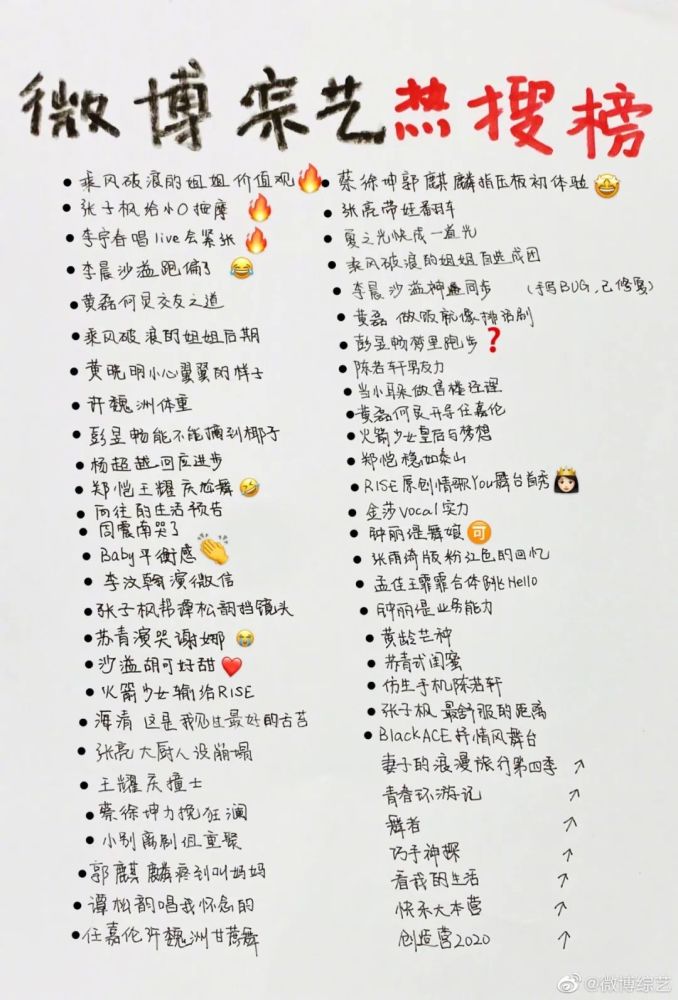 微博综艺热搜榜
乘风破浪的姐姐价值观🔥
张子枫给小O按摩🔥
李宇春唱live会紧张🔥
李晨沙溢跑偏了😂
黄磊何炅交友之道
乘风破浪的姐姐后期
黄晓明小心翼翼的样子
许魏洲体重
彭昱畅能不能摘到椰子
杨超越回应进步
郑恺王耀庆尬舞🤣
向往的生活预告
周震南哭了
Baby平衡感👏
李汶翰演微信
张子枫帮谭松韵挡镜头
苏青演哭谢娜😭
沙溢胡可好甜❤️
火箭少女输给RISE
海清 这是我见过最好的古苔
张亮大厨人设崩塌
王耀庆撞士
蔡徐坤力挽狂澜
小别离剧组重聚
郭麒麟疼到叫妈妈
谭松韵唱我怀念的
任嘉伦许魏洲甘蔗舞
蔡徐坤郭麒麟指压板初体验🤩
张亮带娃翻车
夏之光快成一道光
乘风破浪的姐姐自选成团
李晨沙溢神同步 (手写BUG,已修复)
黄磊 做饭就像排话剧
彭昱畅梦里跑步❓
陈若轩男友力
当小耳朵做售楼经理
黄磊何炅开导任嘉伦
火箭少女皇后与梦想
郑恺稳如泰山
RISE原创情歌You舞台首秀👸
金莎vocal实力
钟丽缇舞娘🉑
张雨绮版粉红色的回忆
孟佳王霏霏合体跳Hello
钟丽缇业务能力
黄龄芒神
苏青式闺蜜
仿生手机陈若轩
张子枫 最舒服的距离
BlackACE抒情风舞台
妻子的浪漫旅行第四季 ↗
青春环游记 ↗
舞者 ↗
巧手神探 ↗
看我的生活 ↗
快乐大本营 ↗
创造营2020 ↗
@微博综艺